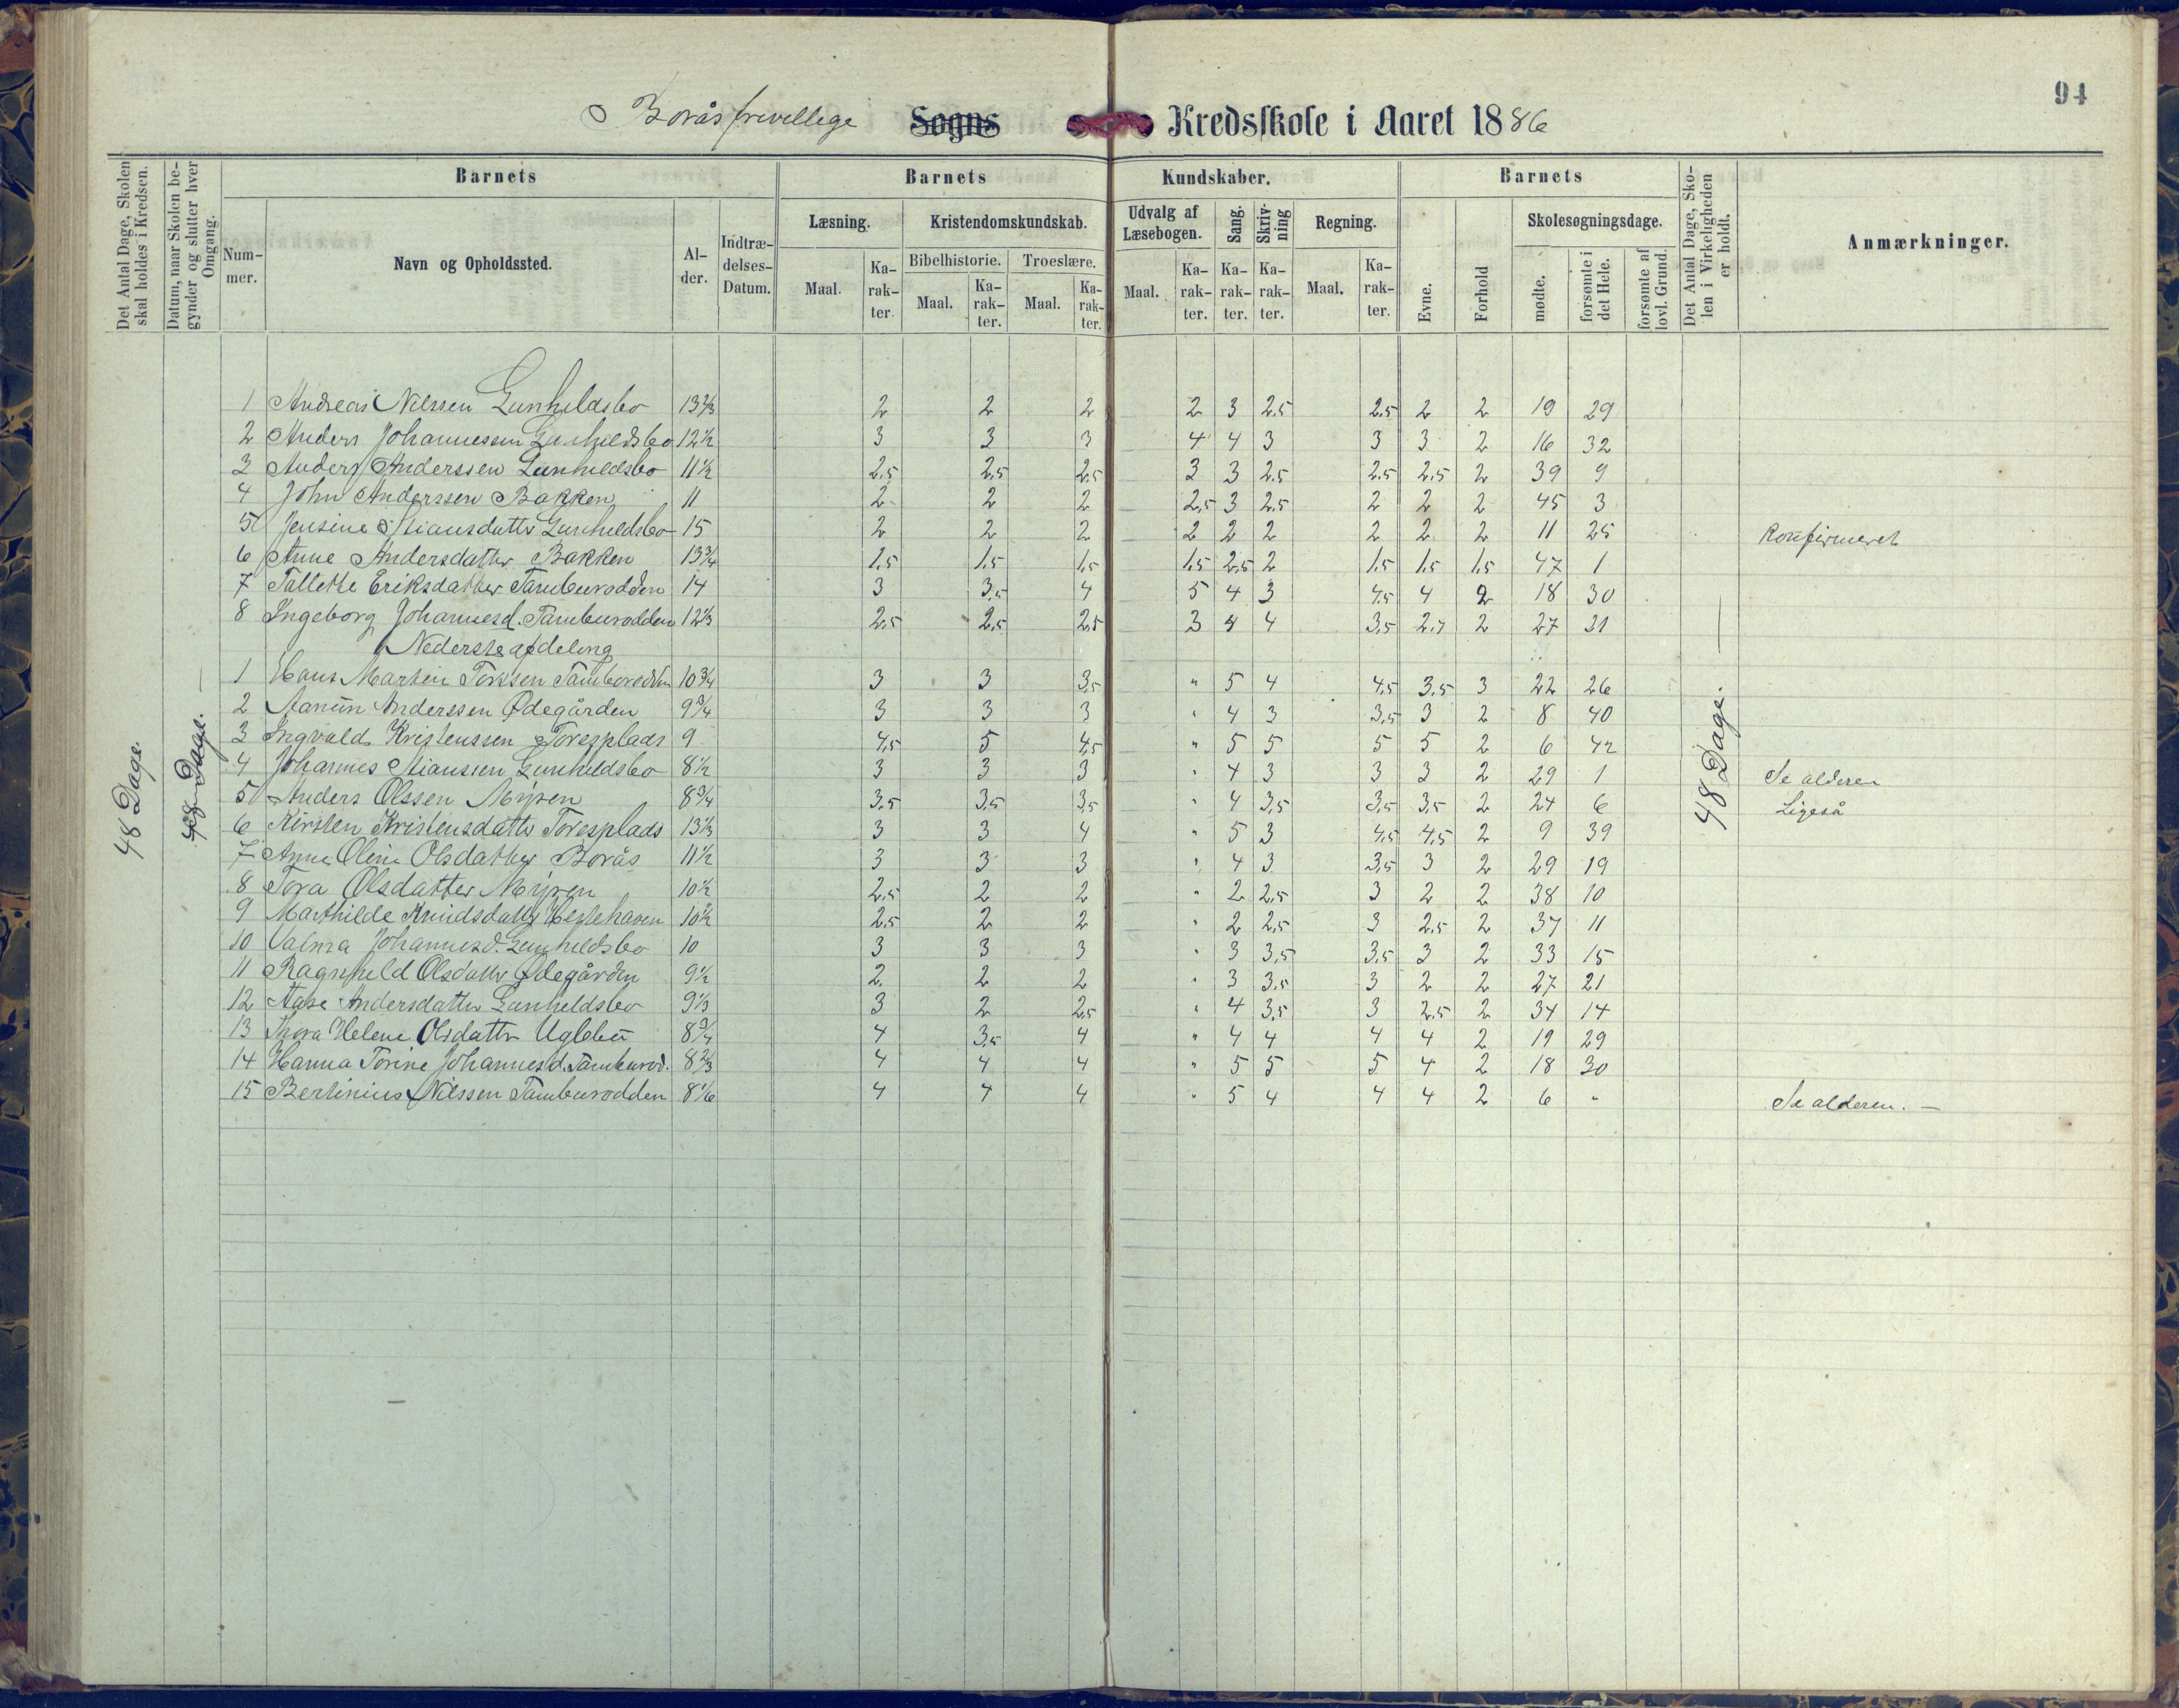 94
Borås frivellege Sogns Kredsskole i Aaret 1886
Det Antal Dage, Skolen skal holdes i Kredsen.
Datum, naar Skolen begynder og slutter hver Omgang.
Barnets
Barnets Kundskaber.
Barnets
Det Antal Dage, Skolen i Virkeligheden er holdt.
Anmærkninger.
Nummer.
Navn og Opholdssted.
Alder.
Indtrædelses-Datum.
Læsning.
Kristendomskundskab.
Udvalg af Læsebogen.
Sang.
Skrivning
Regning.
Evne.
Forhold
Skolesøgningsdage.
Bibelhistorie.
Troeslære.
Maal. Karakter. Maal. Karakter. Maal. Karakter. Maal. Karakter. Karakter. Karakter. Maal. Karakter.
mødte.
forsømte i det Hele.
forsømte af lovl. Grund.
48 Dage.
48 Dage.
48 Dage.
1 Andreas Nilssen Gunhildsbo 13 2/3 2 2 2 2 3 2.5 2.5 2 2 19 29
2 Anders Johannessen Gunhildsbo 12 1/2 3 3 3 4 4 3 3 3 2 16 32
3 Anders Anderssen Gunhildsbo 11 1/2 2,5 2,5 2,5 3 3 2.5 2.5 2,5 2 39 9
4 John Anderssen Bakken 11 2 2 2 2,5 3 2.5 2 2 2 45 3
5 Jensine Stiansdatter Gunhildsbo 15 2 2 2 2 2 2 2 2 2 11 25 Konfirmeret
6 Anne Andersdatter Bakken 13 3/4 1,5 1,5 1,5 1,5 2,5 2 1,5 1,5 1,5 47 1
7 Tallette Eriksdatter Tamburodden 14 3 3,5 4 5 4 3 4,5 4 2 18 30
8 Ingeborg Johannesd. Tamburodden 12 1/3 2,5 2,5 2,5 3 4 4 3,5 2,5 2 27 21
Nederste afdeling
1 Hans Martin Torssen Tamborodden 10 3/4 3 3 3,5 " 5 4 4,5 3,5 3 22 26
2 Anderssen Ødegården 9 3/4 3 3 3 " 4 3 3,5 3 2 8 40
3 Ingvald Kristenssen Toresplads 9 4,5 5 4,5 " 5 5 5 5 2 6 42
4 Johannes Stianssen Gunhildsbo 8 1/2 3 3 3 " 4 3 3 3 2 29 1 Se alderen
5 Anders Olssen Myren 8 3/4 3,5 3,5 3,5 " 4 3,5 3,5 3,5 2 24 6 Ligeså
6 Kirsten Kristensdatter Toresplads 13 1/3 3 3 4 " 5 3 4,5 4,5 2 9 39
7 Anne Oline Olsdatter Borås 11 1/2 3 3 3 " 4 3 3,5 3 2 29 19
8 Tora Olsdatter Myren 10 1/2 2,5 2 2 " 2 2,5 3 2 2 38 10
9 Marthilde Knudsdatter Hestehaven 10 1/2 2,5 2 2 " 2 2,5 3 2,5 2 37 11
10 Valma Johannesd. Gunhildsbo 10 3 3 3 " 3 3,5 3,5 3 2 33 15
11 Ragnhild Olsdatter Ødegården 9 1/2 2, 2 2 " 3 3,5 3 2 2 27 21
12 Aase Andersdatter Gunhildsbo 9 1/3 3 2 2,5 " 4 3,5 3 2,5 2 34 14
13 Thora Helene Olsdatter Uglebu 8 3/4 4 3,5 4 " 4 4 4 4 2 19 29
14 Hanna Torine Johannesd. Tamburod. 8 2/3 4 4 4 " 5 5 5 4 2 18 30
15 Bertinius Nilssen Tamburodden 8 1/6 4 4 4 " 5 4 4 4 2 6 " Se alderen. —